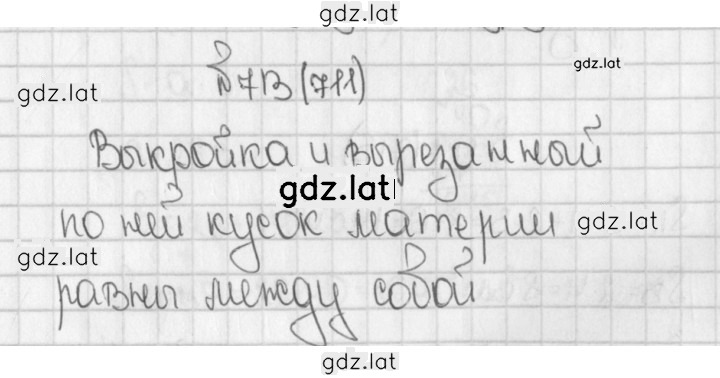 gdz.lat
№713 (711)
gdz.lat
gdz.lat
Выкройка и вырезанный
gdz.lat
по ней кусок материи
gdz.lat
gdz.lat
равны между собой
gdz.lat